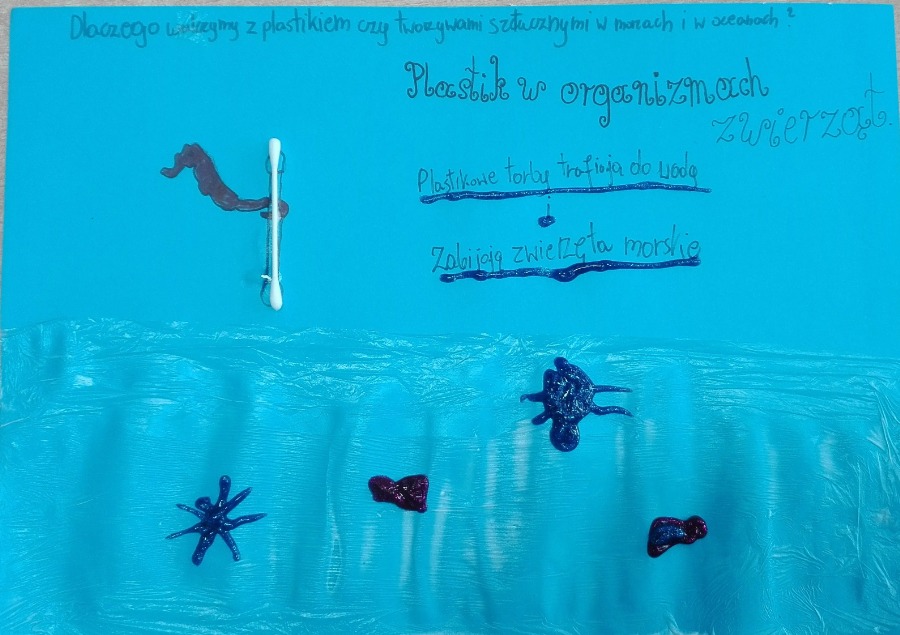 Dlaczego walczymy z plastikiem czy tworzywami sztucznymi w morzach i w oceanach?
Plastik w organizmach
zwierząt.
Plastikowe torby trafiają do wody
Zabijają zwierzęta morskie